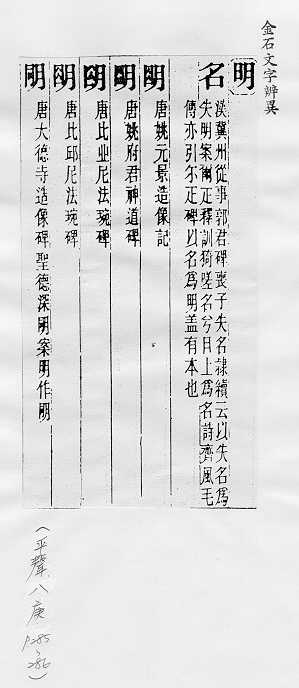 金石文字辨異
明
名 漢冀州從事郭君碑喪子失名隸續云以失名為
失明案爾疋釋訓猗嗟名兮目上為名詩齊風毛
傳亦引尔疋碑以名為明盖有本也
唐姚元景造像記
唐姚府君神道碑
唐比丘尼法琬碑
唐比邱尼法琬碑
唐大德寺造像碑聖德深明案明作明
(平聲八庚
p285
~
286)